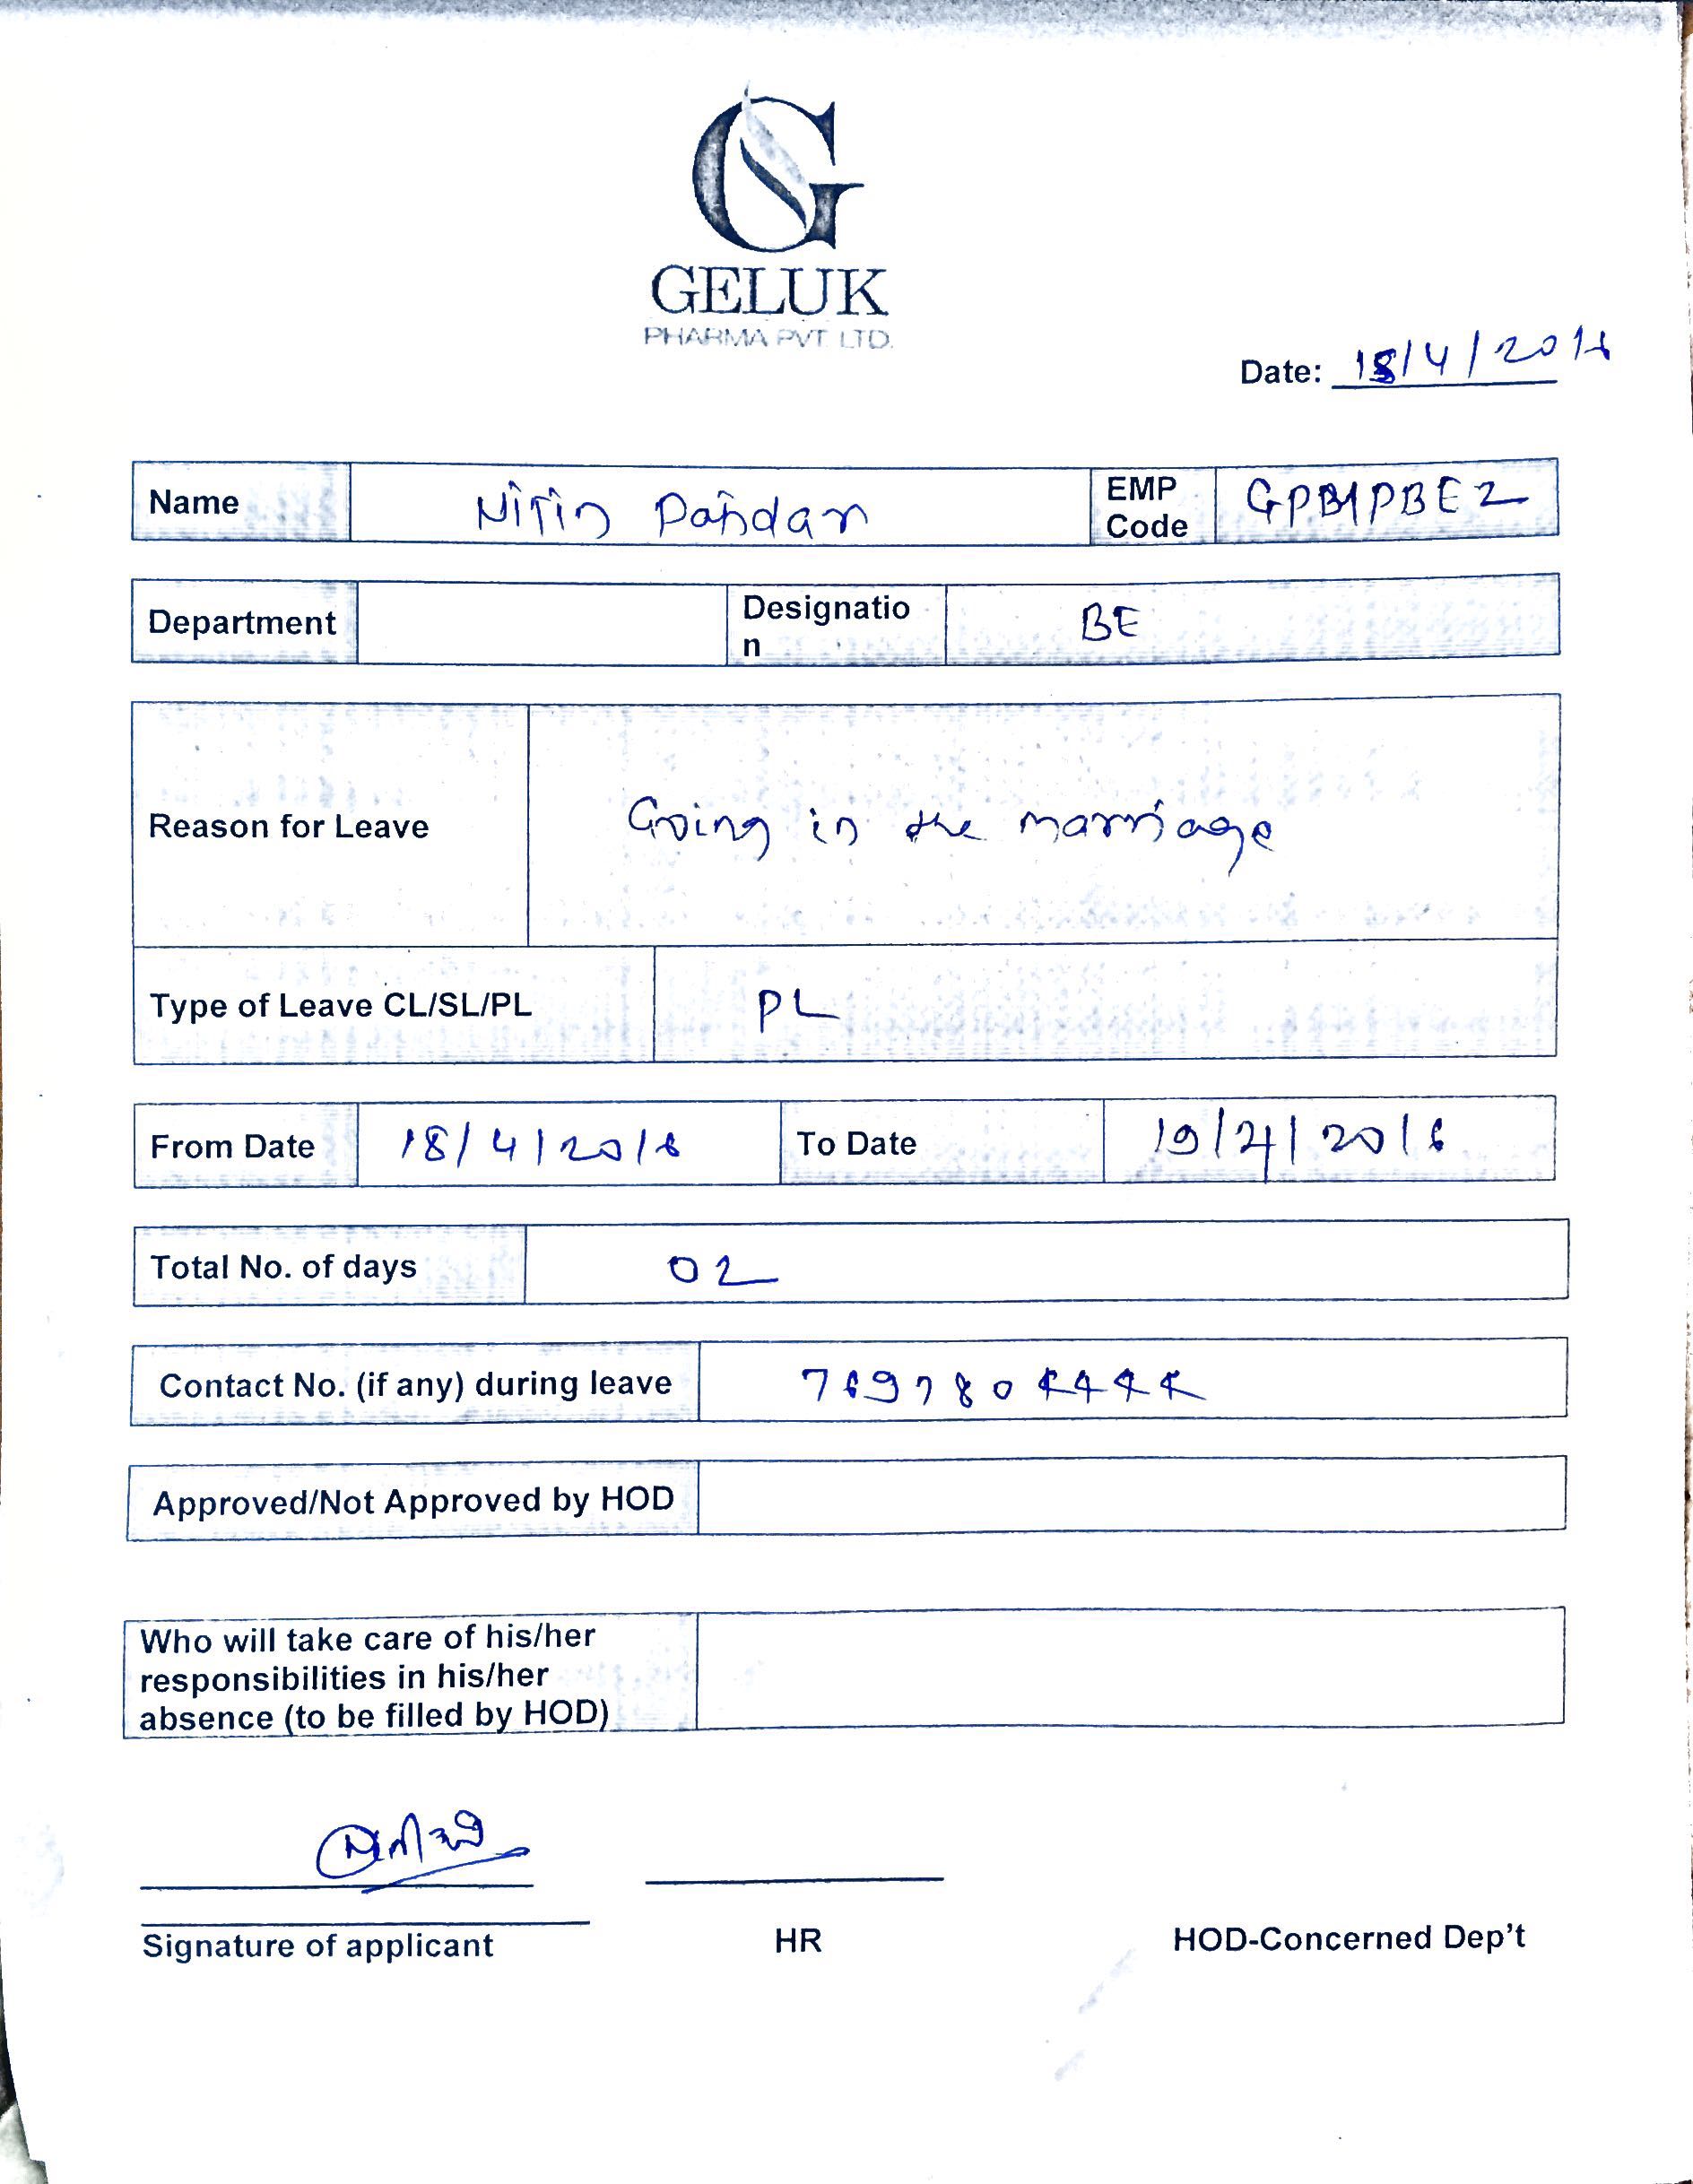 GELUK
PHARMA PVT. LTD.
Date: 18/4/2018
Name Nitin EMP Code
Department Designation BE
Reason for Leave Going in the marriage
Type of Leave CL/SL/PL PL
From Date 18/4/2018 To Date 19/4/2018
Total No. of days 02
Contact No. (if any) during leave
Approved/Not Approved by HOD
Who will take care of his/her
responsibilities in his/her
absence (to be filled by HOD)
Signature of applicant HR HOD-Concerned Dep't